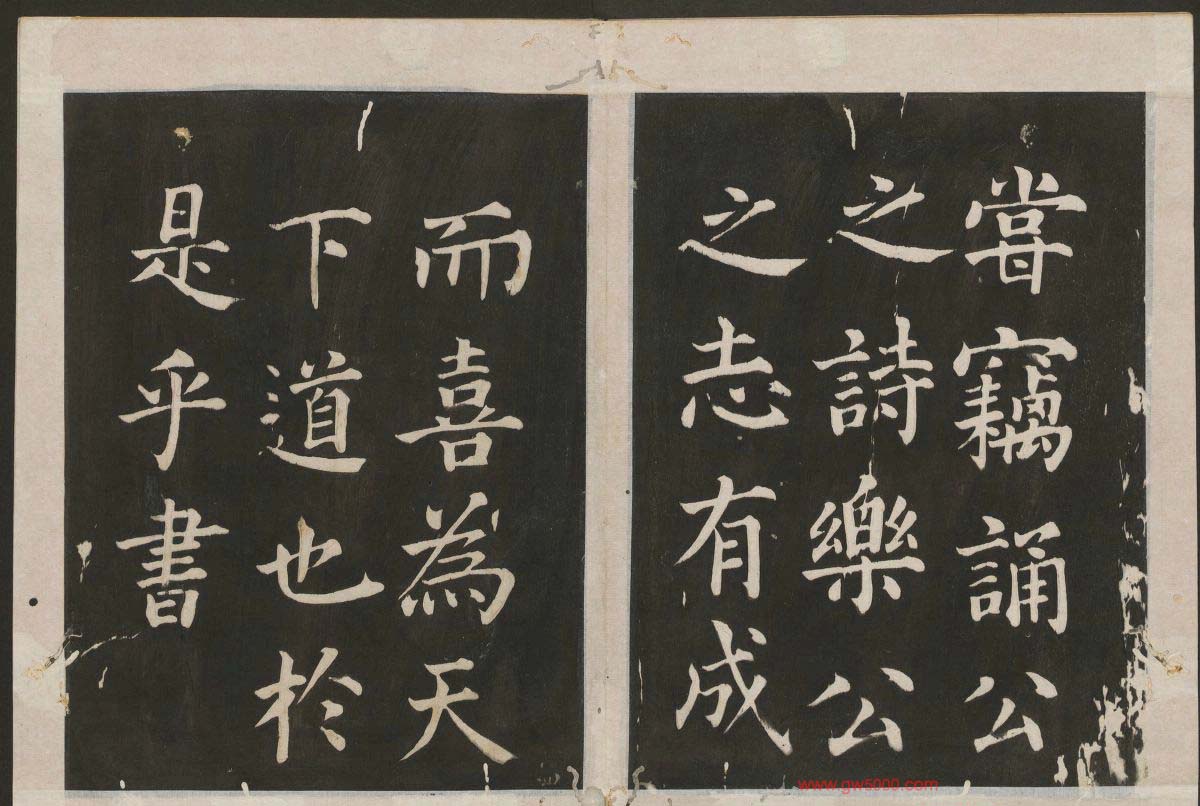 甞竊誦公
之詩樂公
之志有成
而喜為天
下道也於
是乎書
www.gw5000.com